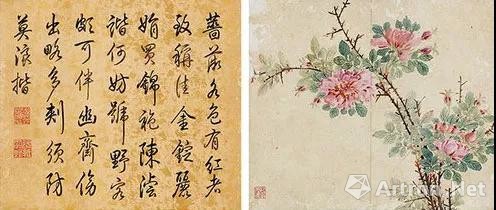 薔薇各色有紅者
致稱佳金麗
娟買錦施陳
諧何妨號野客
頗可伴幽齋傷
出略多刺須防
莫浪揩
Artron.Net